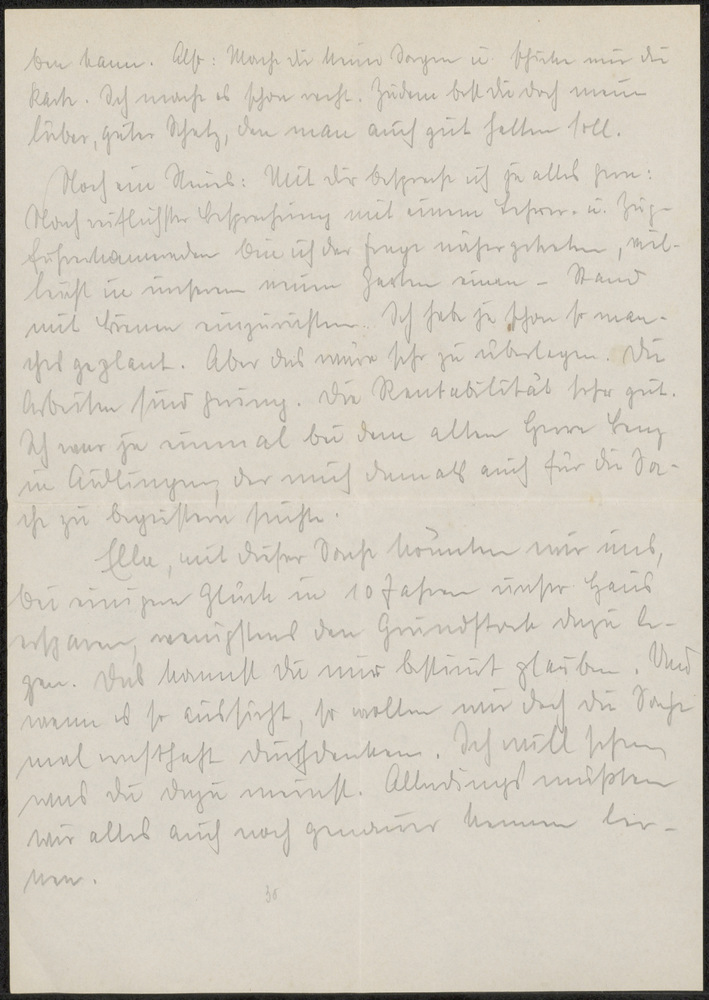 ben kann. Also: Mache dir keine Sorgen u. schicke mir die
Karte. Ich mache es schon recht. Zudem bist du doch mein
lieber, guter Schatz, den man auch gut halten soll.
Noch ein Neues: Mit dir bespreche ich ja alles gern:
Nach reiflichster Besprechung mit einem Lehrer- u. Zug-
führerkameraden bin ich der Frage näher getreten, viel-
leicht in unserem neuen Garten einen - Stand
mit Bienen einzurichten. Ich habe ja schon so man-
ches geplant. Aber das wäre sehr zu überlegen. Die
Arbeiten sind gering. Die Rentabilität sehr gut.
Ich war ja einmal bei dem alten Herrn Benz
in Aidlingen, der mich damals auch für die Sa-
che zu begeistern suchte.
Ella, mit dieser Sache könnten wir uns,
bei einigem Glück in 10 Jahren unser Haus
ersparen, wenigstens den Grundstock dazu le-
gen. Das kannst du mir bestimmt glauben. Und
wenn es so aussieht, so wollen wir doch die Sache
mal ernsthaft durchdenken. Ich will sehen,
was du dazu meinst. Allerdings müßten
wir alles auch noch genauer kennen ler-
nen.
36